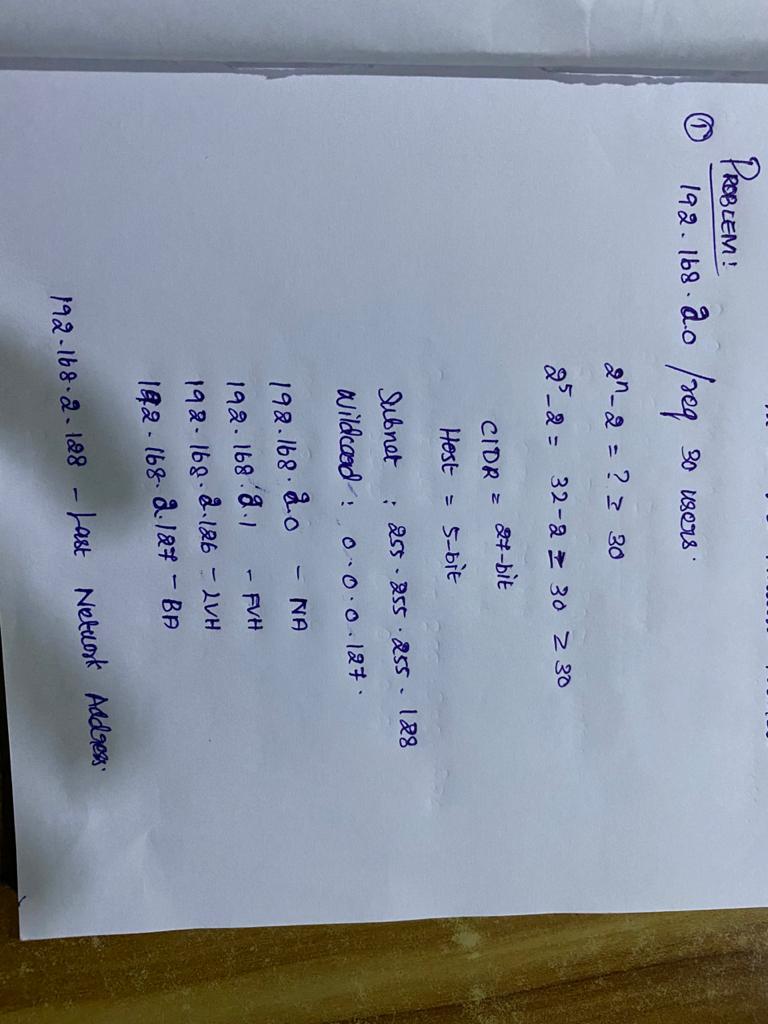 PROBLEM!
① 192.168.2.0 / req 30 users.
2ⁿ-2 = ? ≥ 30
2⁵-2 = 32-2 = 30 ≥ 30
CIDR = 27-bit
Host = 5-bit
Subnet : 255.255.255.128
Wildcard : 0.0.0.127.
192.168.2.0 - NA
192.168.2.1 - FVH
192.168.2.126 - LVH
192.168.2.127 - BA
192.168.2.128 - Last Network Address.